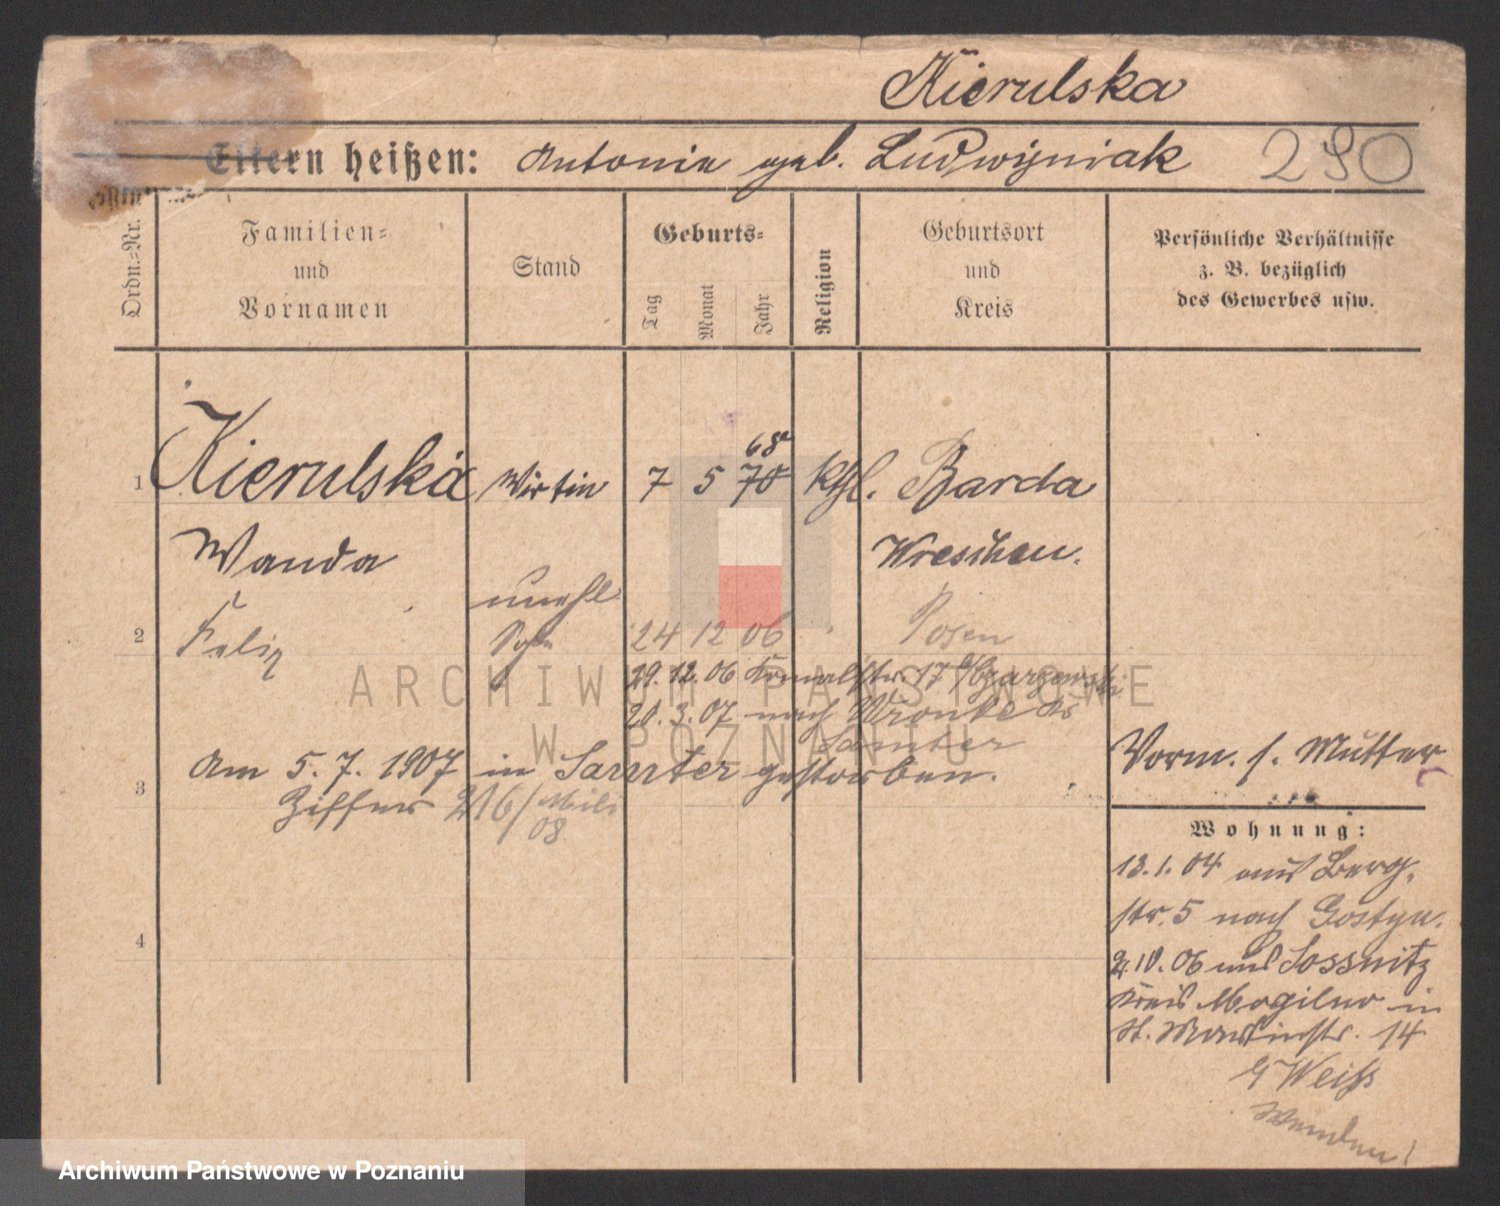 Kierulska
Eltern heißen: Antonie geb. Ludwizniak 290
Ordn.-Nr. Familien- und Vornamen Stand Geburts- Tag Monat Jahr Religion Geburtsort und Kreis Persönliche Verhältnisse z. B. bezüglich des Gewerbes usw.
68
1 Kierulska Wirtin 7 5 70 kthl. Barda
Wanda Wreschen.
unehl
2 Feliz Sohn 24 12 06 Posen
29. 12. 06 17
20. 3. 07 nach Wronke Kr
Samter
Vorm. s. Mutter
3 Am 5. 7. 1907 in Samter gestorben.
Ziffer 216/
08
Wohnung:
13. 1. 04 aus Berg-
str. 5 nach Gostyn.
4 2. 10. 06 aus Lossnitz
Kreis Mogilno in
St. Martinstr. 14
b/ Weiß
Wenden!
ARCHIWUM PAŃSTWOWE
W POZNANIU
Archiwum Państwowe w Poznaniu